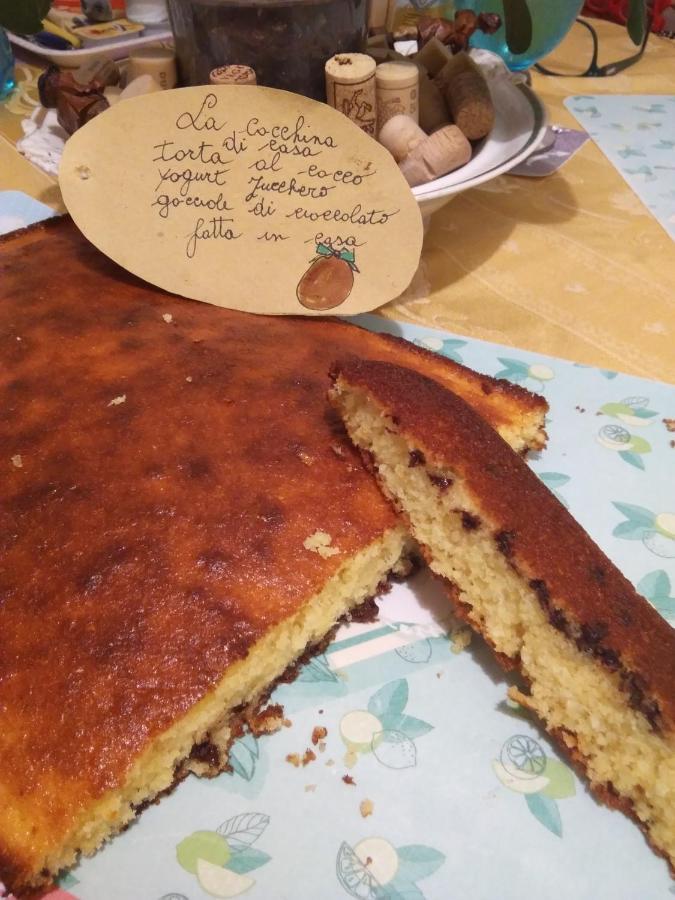 La Cocchina
di casa
torta al cocco
yogurt zucchero
gocciole di cioccolato
fatta in casa